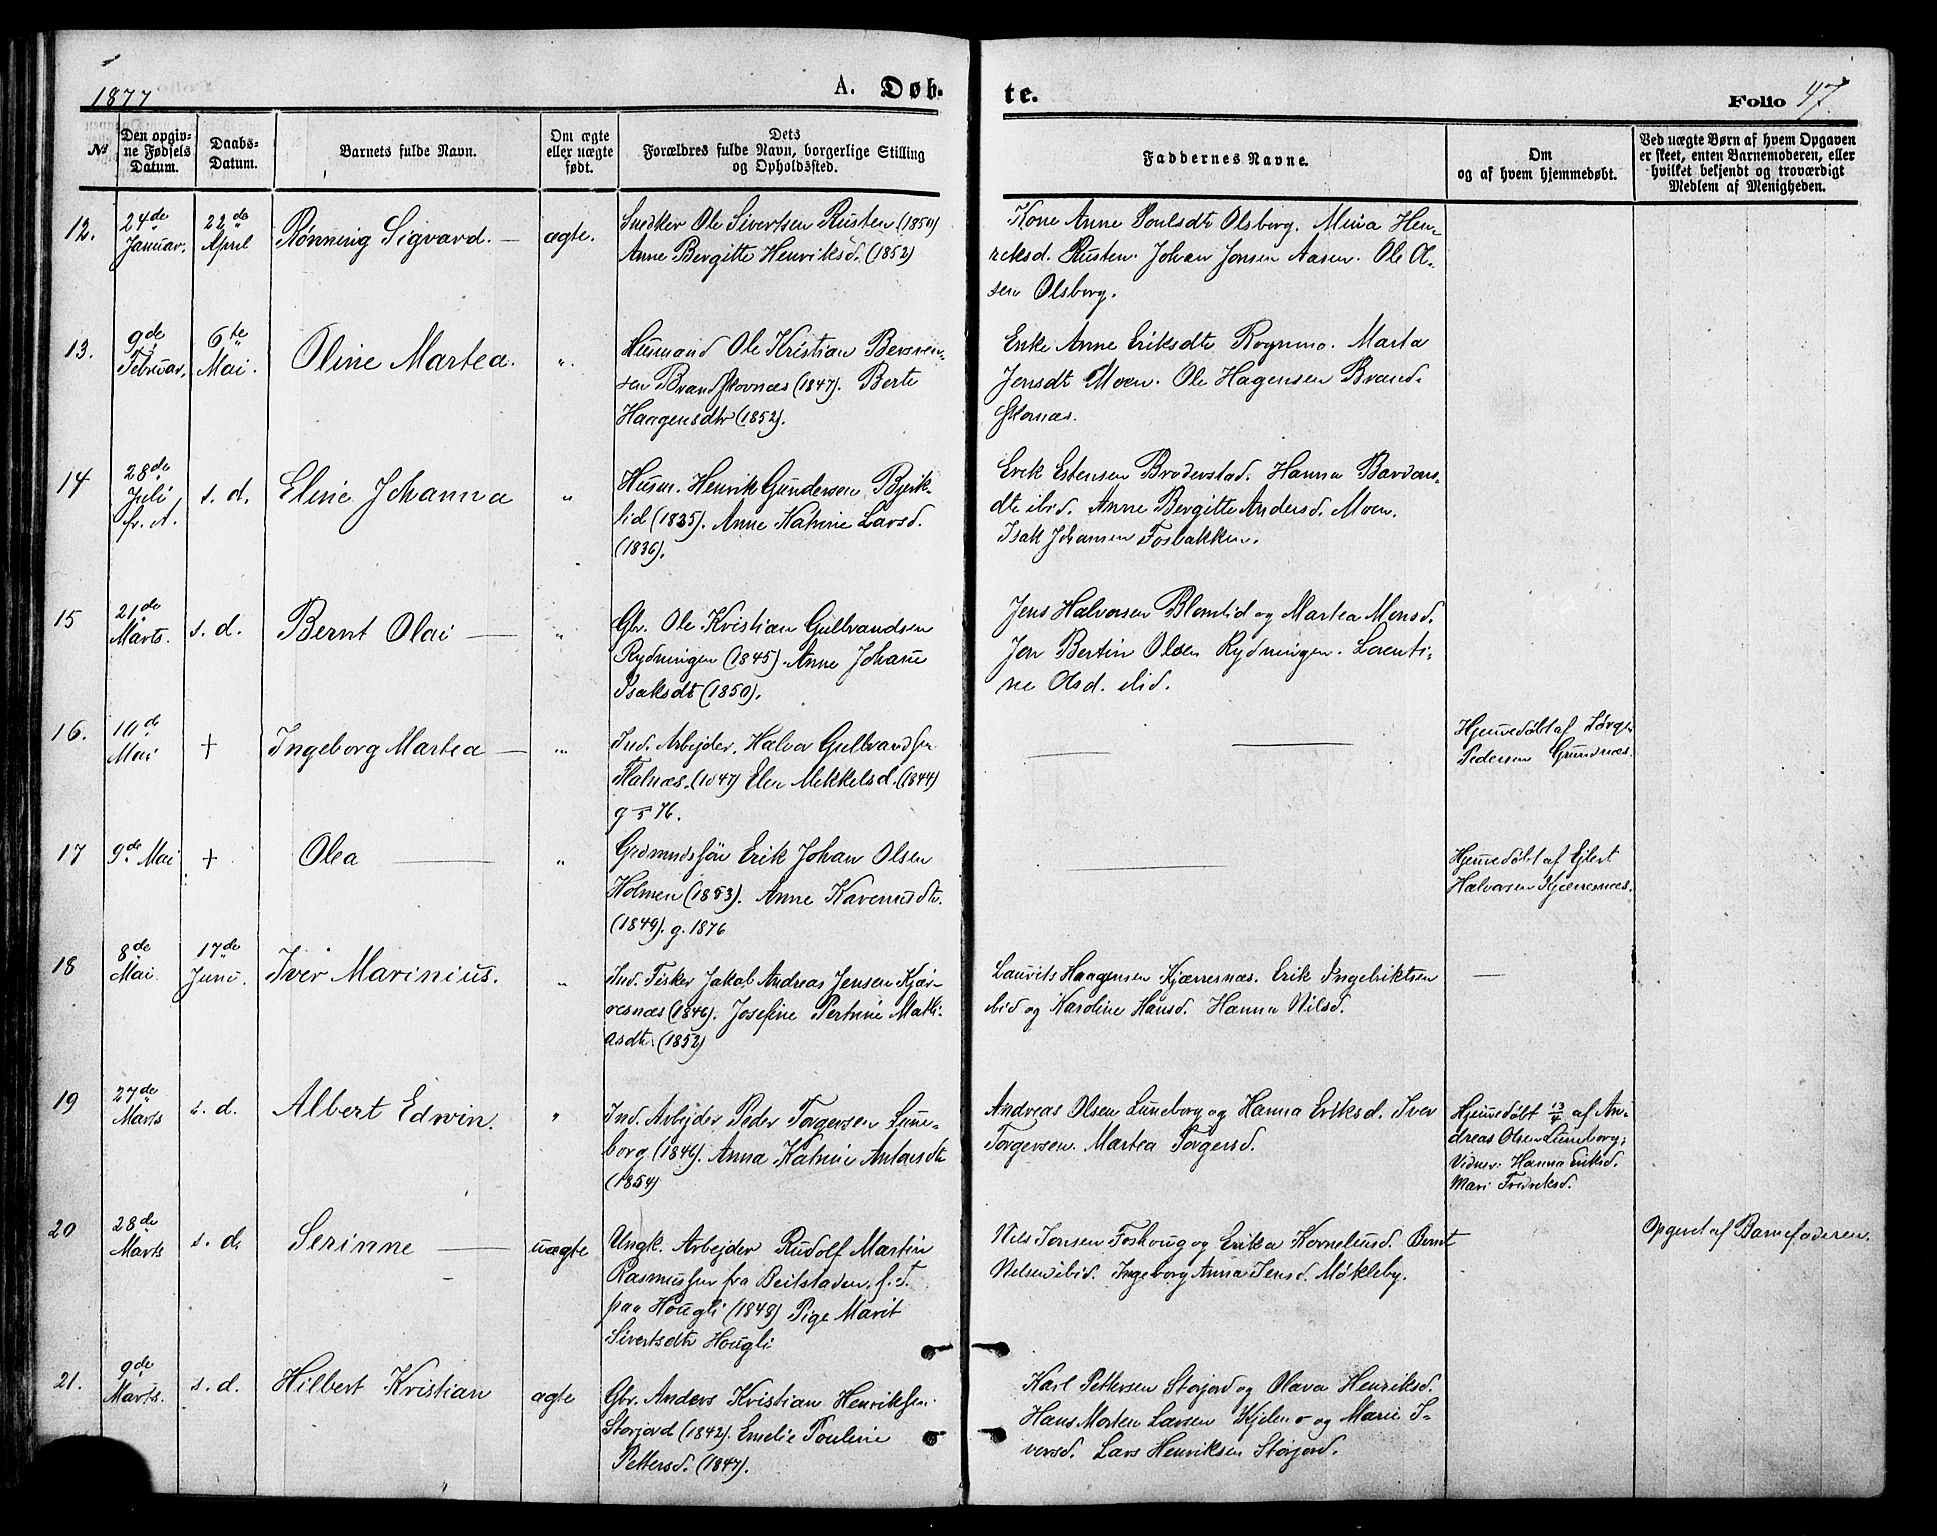 1877
A. Døb-
te.
Folio 47.
No
Den opgiv-
ne Fødsels
Datum.
Daabs-
Datum.
Barnets fulde Navn.
Om ægte
eller uægte
født.
Dets
Forældres fulde Navn, borgerlige Stilling
og Opholdssted.
Faddernes Navne.
Om
og af hvem hjemmedøbt.
Ved uægte Børn af hvem Opgaven
er skeet, enten Barnemoderen, eller
hvilket bekjendt og troværdigt
Medlem af Menigheden.
12.
24de
Januar.
22de
April
Rønning Sigvard. —
ægte.
Snedker Ole Sivertsen Rusten (1850)
Anne Bergitte Henriksd. (1852)
Kone Anne Poulsdt Olsborg. Mina Hen-
reksd. Rusten. Johan Jonsen Aasen. Ole Ol-
sen Olsborg.
13.
9de
Februar,
6te
Mai.
Oline Martea.
"
Husmand Ole Kristian
sen Brandskovnæs (1847). Berte
Haagensdtr (1852).
Enke Anne Eriksdtr Rognmo. Marta
Jensdt Moen. Ole Hagensen Brand-
skovnæs.
14
28de
Juli
fr. A.
s. d.
Eline Johanna
"
Husm. Henrik Gundersen Bjerk-
lid (1835). Anne Katrine Larsd.
(1836).
Erik Estensen Broderstad. Hanna Bardons-
dtr ibid. Anne Bergitte Andersd. Moen.
Isak Johansen Fosbakken.
15
21de
Marts.
s. d.
Bernt Olai —
"
Gbr. Ole Kristian Gullvandsen
Rydningen (1845). Anne Johane
Isaksdt (1850).
Jens Halvorsen Blomlid og Martea Monsd.
Jon Bertin Olsen Rydningen. Lorenti-
ne Olsd. ibid.
16.
10de
Mai
+
Ingeborg Martea —
"
Ind. Arbejder. Halvor Gullvandsen
(1847) Elen Mikkelsd. (1844)
g 5 76.
— —
Hjemmedøbt af Jørgen
Pedersen Grundnæs.
17
9de Mai
+
Olea —
"
Grdmandssøn Erik Johan Olsen
Holmen (1853). Anne Karenusdtr.
(1849). g. 1876
—
Hjemmedøbt af Ejlert
Halvorsen Kjærresnæs.
18
8de
Mai.
17de
Juni.
Iver Marinius.
"
Ind. Fisker Jakob Andreas Jensen Kjær-
resnæs (1846). Josefine Pertrine Matti-
asdtr. (1852)
Laurits Haagensen Kjærresnæs. Erik Ingebriktsen
ibid og Karoline Hansd. Hanna Nilsd.
—
19
27de
Marts
s. d.
Albert Edwin.
"
Ind. Arbejder Peder Torgersen Lune-
borg (1846). Anna Katrine Antonsdtr
(1854)
Andreas Olsen Luneborg og Hanna Eriksd. Iver
Torgersen. Martea Torgersd.
Hjemmedøbt 13/4 af An-
dreas Olsen Luneborg;
Vidner: Hanna Eriksd.
Mari Fredriksd.
20
28de
Marts
s. d.
Serinne —
uægte
Ungk. Arbejder Rudolf Martin
Rasmussen fra Beitstaden, f. T.
paa Hougli (1848) Pige Marit
Sivertsdtr Hougli
Nils Jonsen Foshoug og Erika Korneliusd. Bernt
Nilsen ibid. Ingeborg Anna Jensd. Møkleby.
Opgivet af Barnefaderen.
21.
9de
Marts.
s. d.
Hilbert Kristian
ægte
Gbr. Anders Kristian Henriksen
Storjord (1842). Emelie Pouline
Pettersd. (1847).
Karl Pettersen Storjord og Olava Henriksd.
Hans Morten Larsen Kjelmo og Marie I-
versd. Lars Henriksen Storjord.